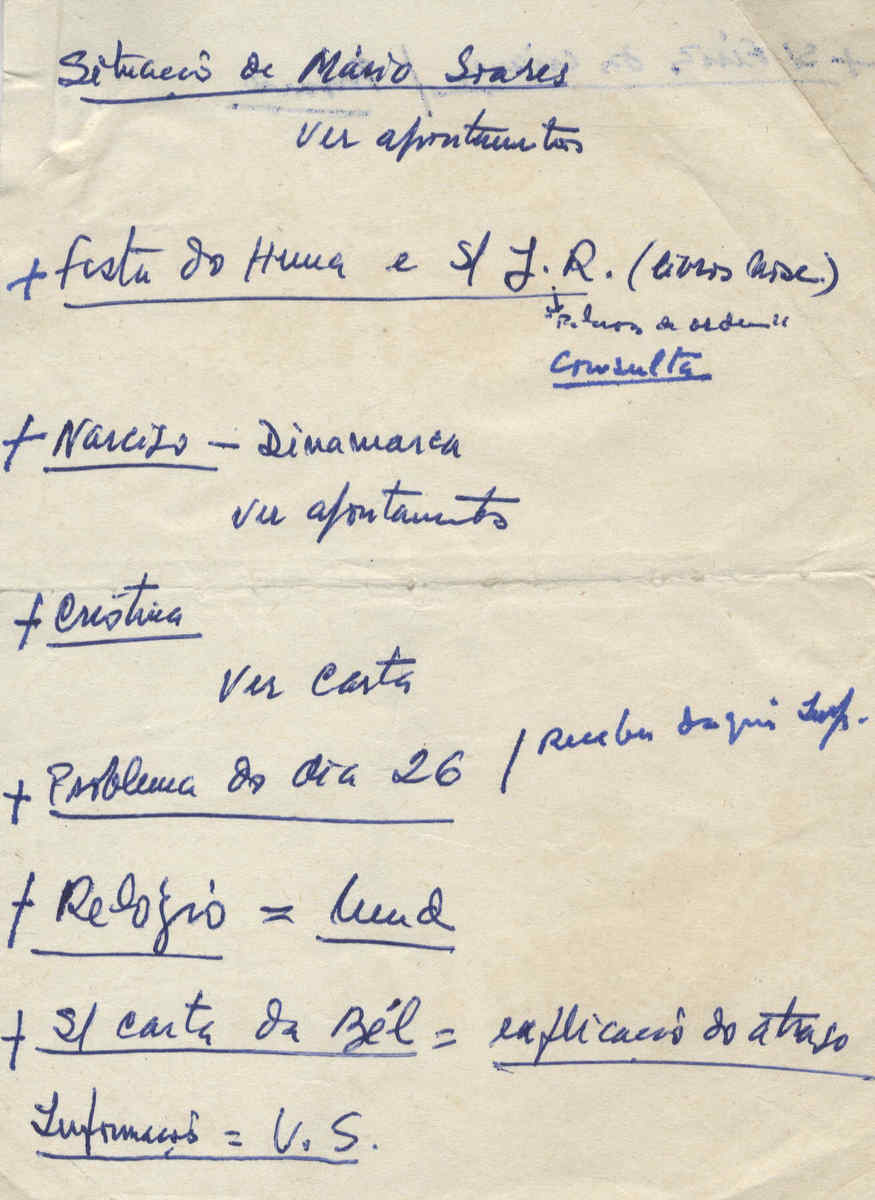 Situação de Mário Soares
Ver apontamentos
+ Festa do Huma e S/ J. R. (livros
de ordem"
Consulta
+ Narciso – Dinamarca
Ver apontamentos
+ Cristina
Ver carta
+ Problema do dia 26 / Receber daqui Inf.
+ Relógio =
+ S/ carta da Bél = explicação do atraso
Informação = V. S.